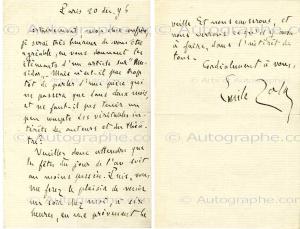 Paris 20 dec. 96
Certainement, mon cher confrère,
je serai très heureux de vous être
agréable, en vous donnant les
éléments d'un article sur Messidor.
Mais n'est-il pas trop
tôt de parler d'une pièce qui
ne passera que dans deux mois
et ne faut-il pas tenir un
peu compte des véritables intérêts
des auteurs et du théâtre?
Veuillez donc attendre que
les fêtes du jour de l'an soient
au moins passées. Puis, vous
me ferez le plaisir de venir
un soir chez moi, à six
heures, en me prévenant la
veille. Et nous causerons, et
nous verrons ce qu'il y a
à faire, dans l'intérêt de
tous.
Cordialement à vous.
Emile Zola
© Autographe.com